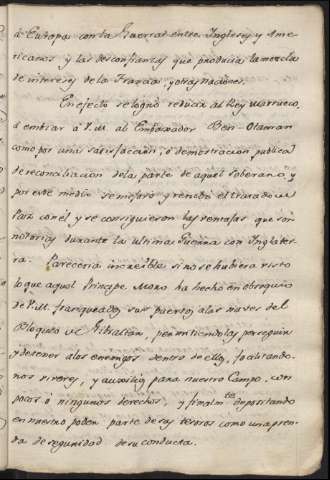 de Europa con la Guerra entre Ingleses y Ame-
ricanos y las desconfianzas que producia la mezcla
de intereses de la Francia, y otras naciones.
En efecto se logró reducir al Rey Marrueco,
á embiar á V.M. al Embaxador Ben-Otoman
como por una satisfaccion, ó demostracion publica
de reconciliacion de la parte de aquel Soberano, y
por este medio se mejoró y renobó el tratado de
Paz con él y se consiguieron las ventajas que son
notorias durante la ultima Guerra con Inglater-
ra. Pareceria increible si no se hubiera visto
lo que aquel Principe Moro ha hecho en obsequio
de V.M. franqueando sus puertos a las naves del
Bloqueo de Gibraltar, permitiendolas perseguir
y detener a los enemigos dentro de ellos, facilitando-
nos viveres, y auxilios para nuestro Campo, con
pocos ó ningunos derechos, y finalmte depositando
en nuestro poder parte de sus tesoros como una pren-
da de seguridad de su conducta.